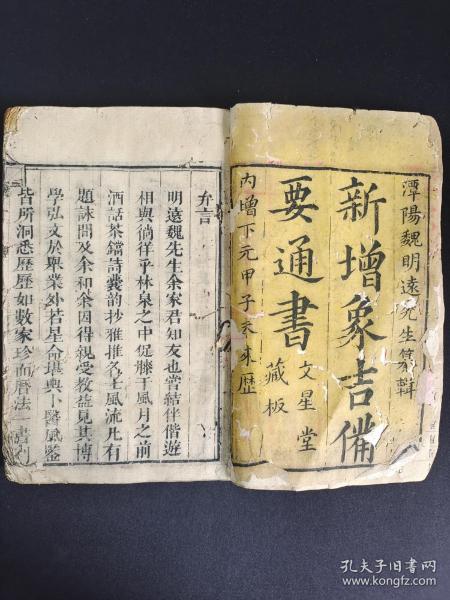 潭陽魏明遠先生纂輯
新增象吉備
要通書
文星堂
藏板
內增下元甲子未來歷
弁言
明遠魏先生余家君知友也嘗結伴偕遊
相與徜徉乎林泉之中促膝于風月之前
酒話茶鐺詩囊韵抄雅推名士風流凡有
題詠間及余和余因得親受教益見其博
學弘文於舉業外若星命堪輿卜醫風鑒
皆所洞悉歷歷如數家珍而曆法一書刋
孔夫子旧书网
www.kongfz.com